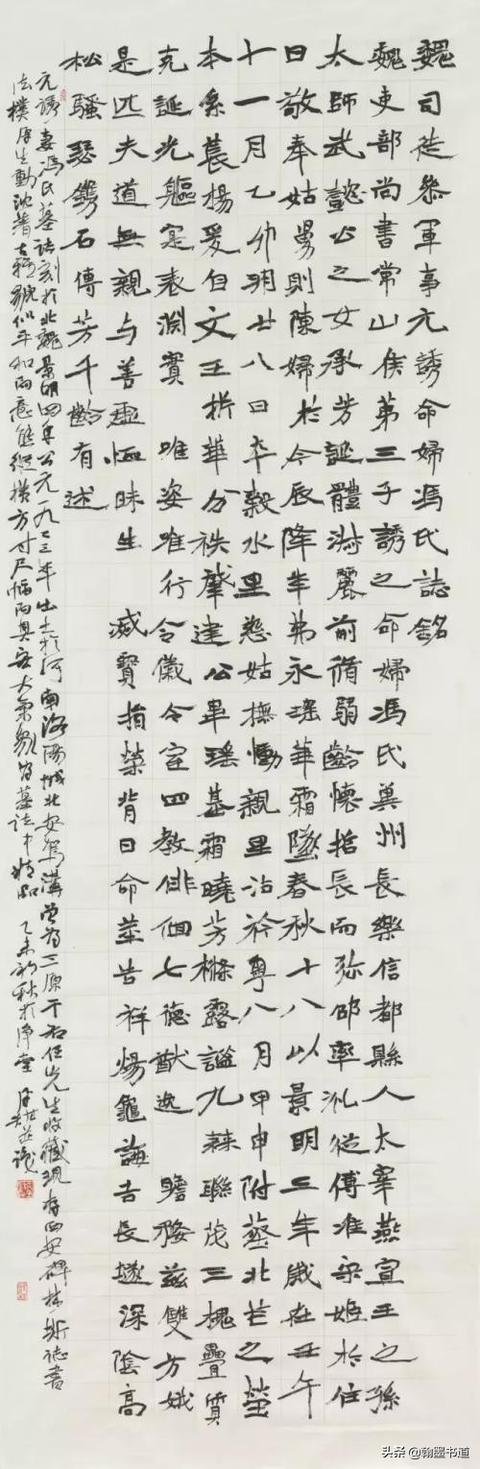 魏司徒參軍事元誘命婦馮氏誌銘
魏吏部尚書常山侯第三子誘之命婦馮氏冀州長樂信都縣人太宰燕宣王之孫
太師武懿公之女承芳誕體淑麗前脩弱齡懷哲長而弥邵率礼從傅准梁姬於往
日敬奉姑舅則陳婦於今辰降年弗永瑤華霜墜春秋十八以景明三年歲在壬午
十一月乙卯朔廿八日卒穀水里慈姑撫慟親里沾衿粤八月甲申附葬北芒之塋
本系萇楊爰自文王折華分秩肇建公畢瑤基霜曉芳條露謐九棘聯茂三槐疊質
克誕光軀寔表淵實 唯姿唯行令儀令室四教俳佪七德猷逸 瞻發茲雙方娥
是匹夫道無親与善虛恒昧生 滅寶捐榮背日命筮告祥煬龜誨吉長埏深陰高
松騷瑟鐫石傳芳千齡有述
元誘妻馮氏墓誌刻於北魏景明四年公元一九二三年出土於河南洛陽城北安駕溝曾為三原于右任先生收藏現存西安碑林斯誌書
法樸厚生動沈著古雅 似平和而意態縱橫方寸尺幅而具安大氣象 墓誌中精品 乙未初秋於淨堂
头条 @翰墨书道